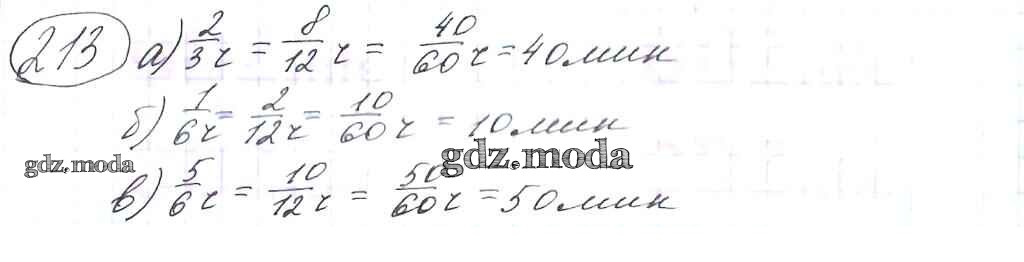 213 а) 2/3 ч = 8/12 ч = 40/60 ч = 40 мин
б) 1/6 ч = 2/12 ч = 10/60 ч = 10 мин
gdz.moda
gdz.moda
в) 5/6 ч = 10/12 ч = 50/60 ч = 50 мин